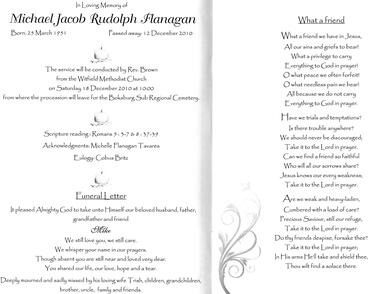 In Loving Memory of
Michael Jacob Rudolph Flanagan
Born: 25 March 1951 Passed away: 12 December 2010
The service will be conducted by Rev. Brown
from the Witfield Methodist Church
on Saturday 18 December 2010 at 10:00
from where the procession will leave for the Boksburg Sub Regional Cemetery.
Scripture reading: Romans 5: 3-7 & 8: 37-39
Acknowledgments: Michelle Flanagan Tavares
Eulogy: Cobus Britz
Funeral Letter
It pleased Almighty God to take unto Himself our beloved husband, father,
grandfather and friend
Mike
We still love you, we still care.
We whisper your name in our prayers.
Though absent you are still near and loved very dear.
You shared our life, our love, hope and a tear.
Deeply mourned and sadly missed by his loving wife Trish, children, grandchildren,
brother, uncle, family and friends.
What a friend
What a friend we have in Jesus,
All our sins and griefs to bear!
What a privilege to carry
Everything to God in prayer!
O what peace we often forfeit!
O what needless pain we bear!
All because we do not carry
Everything to God in prayer.
Have we trials and temptations?
Is there trouble anywhere?
We should never be discouraged;
Take it to the Lord in prayer.
Can we find a friend so faithful
Who will all our sorrows share?
Jesus knows our every weakness;
Take it to the Lord in prayer.
Are we weak and heavy-laden,
Cumbered with a load of care?
Precious Saviour, still our refuge,
Take it to the Lord in prayer.
Do thy friends despise, forsake thee?
Take it to the Lord in prayer;
In His arms He'll take and shield thee,
Thou wilt find a solace there.